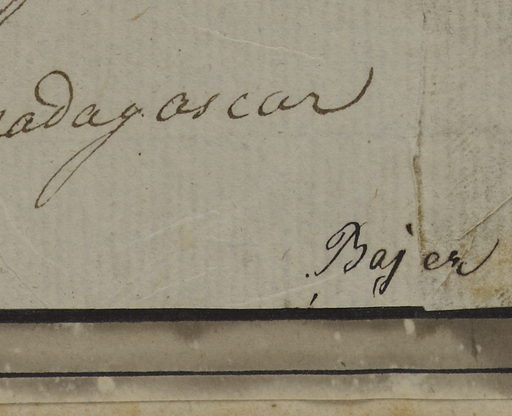 adagascar
Bajer